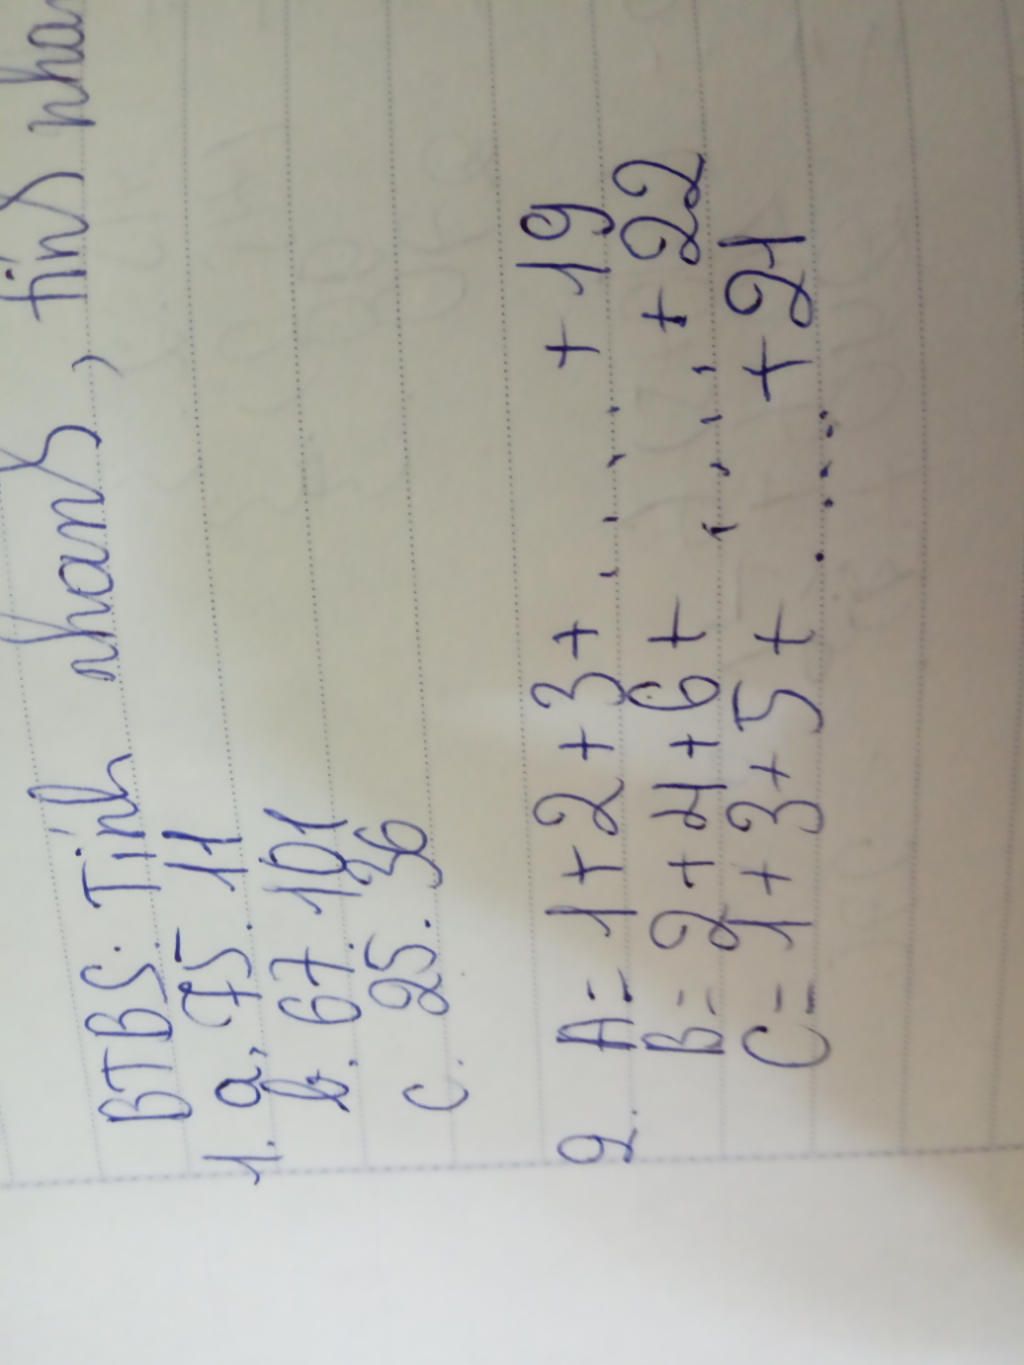 BTBS: Tính nhanh, tính nha
1. a, 75. 11
b. 67. 101
c. 25. 36
2. A = 1 + 2 + 3 + .... + 19
B = 2 + 4 + 6 + .... + 22
C = 1 + 3 + 5 + ..... + 21